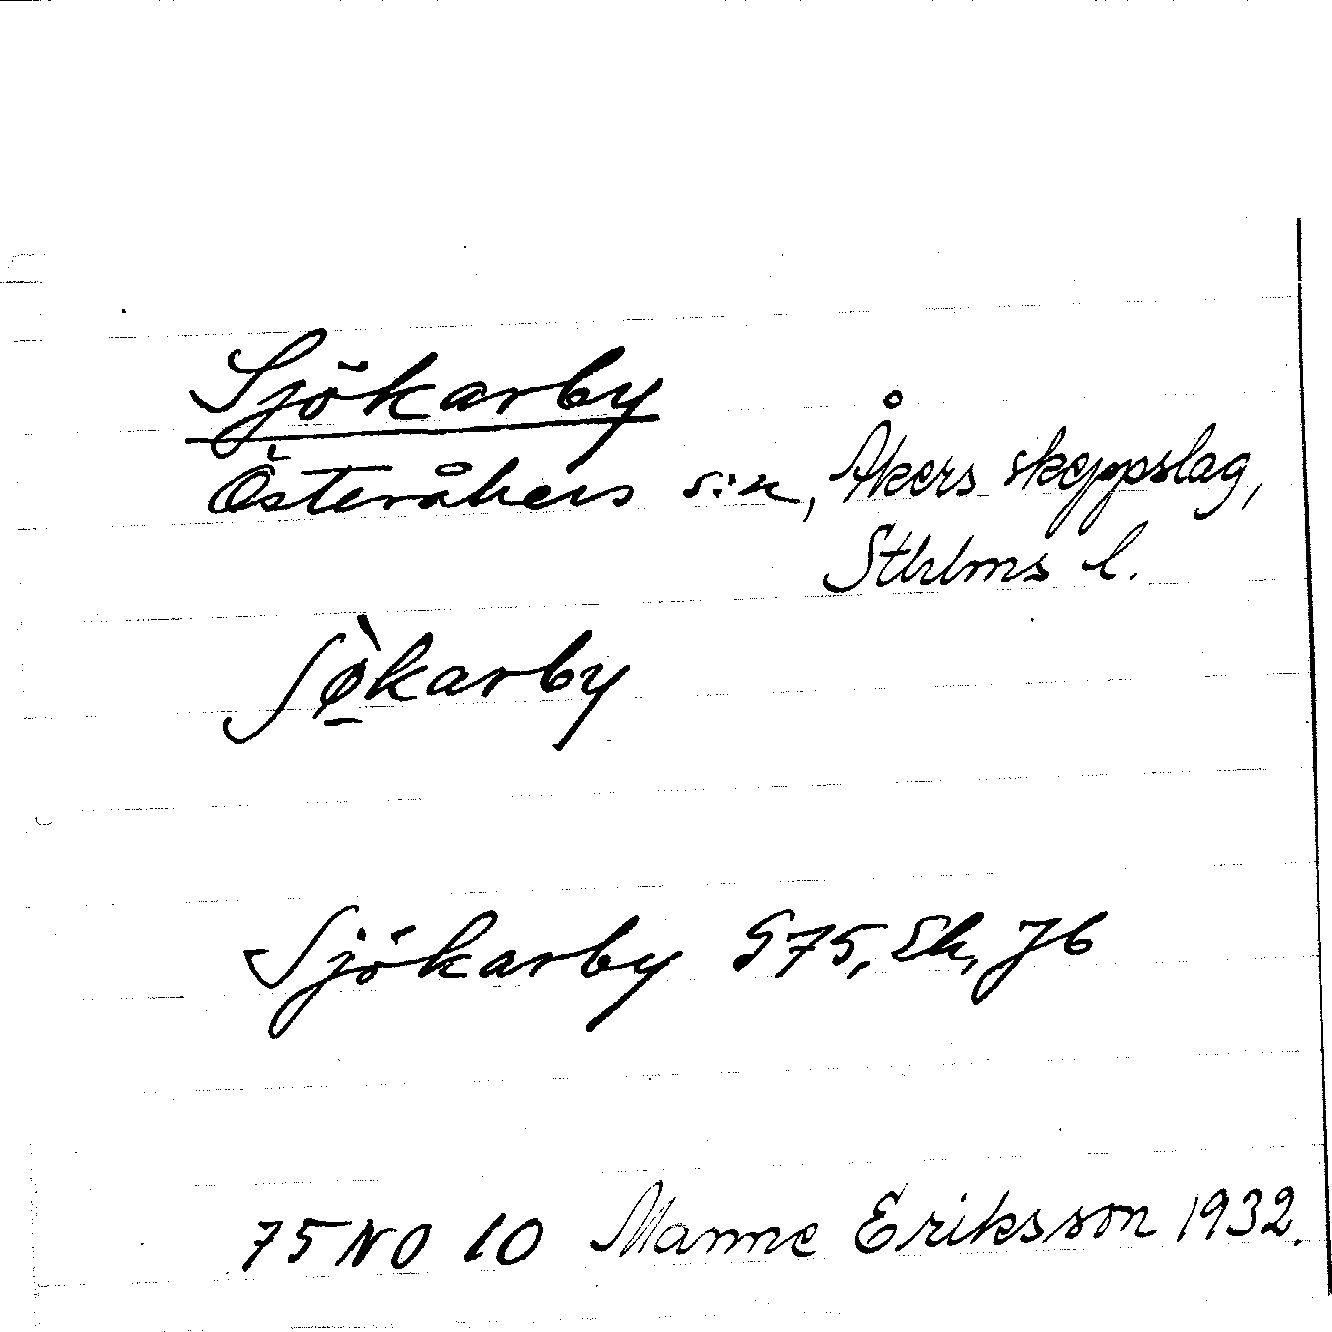 Sjökarby
Österåkers sn, Åkers skeppslag,
Sthlms l.
Sø̀karby
Sjökarby G75, Ek, Jb
75 NO 10 Manne Eriksson 1932.